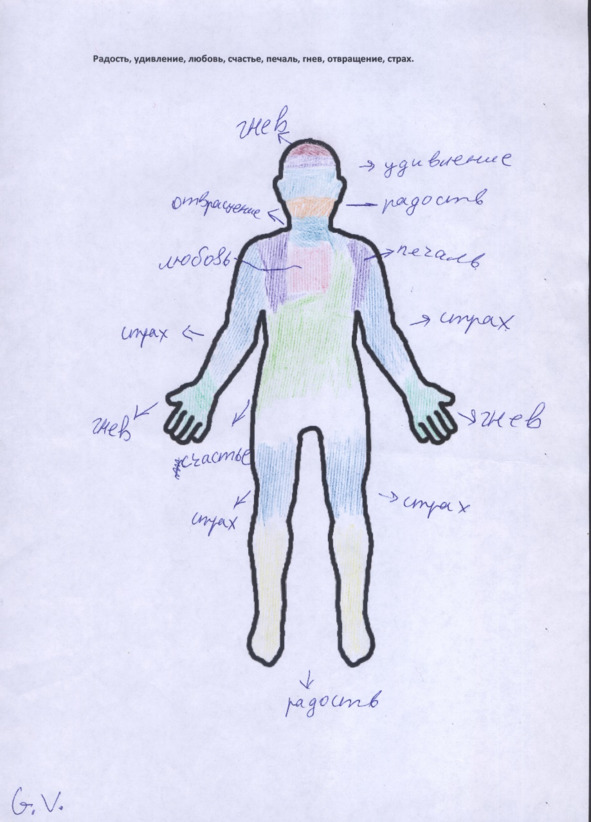 Радость, удивление, любовь, счастье, печаль, гнев, отвращение, страх.
гнев
удивление
отвращение
радость
любовь
печаль
страх
страх
гнев
гнев
счастье
страх
страх
радость
G.V.